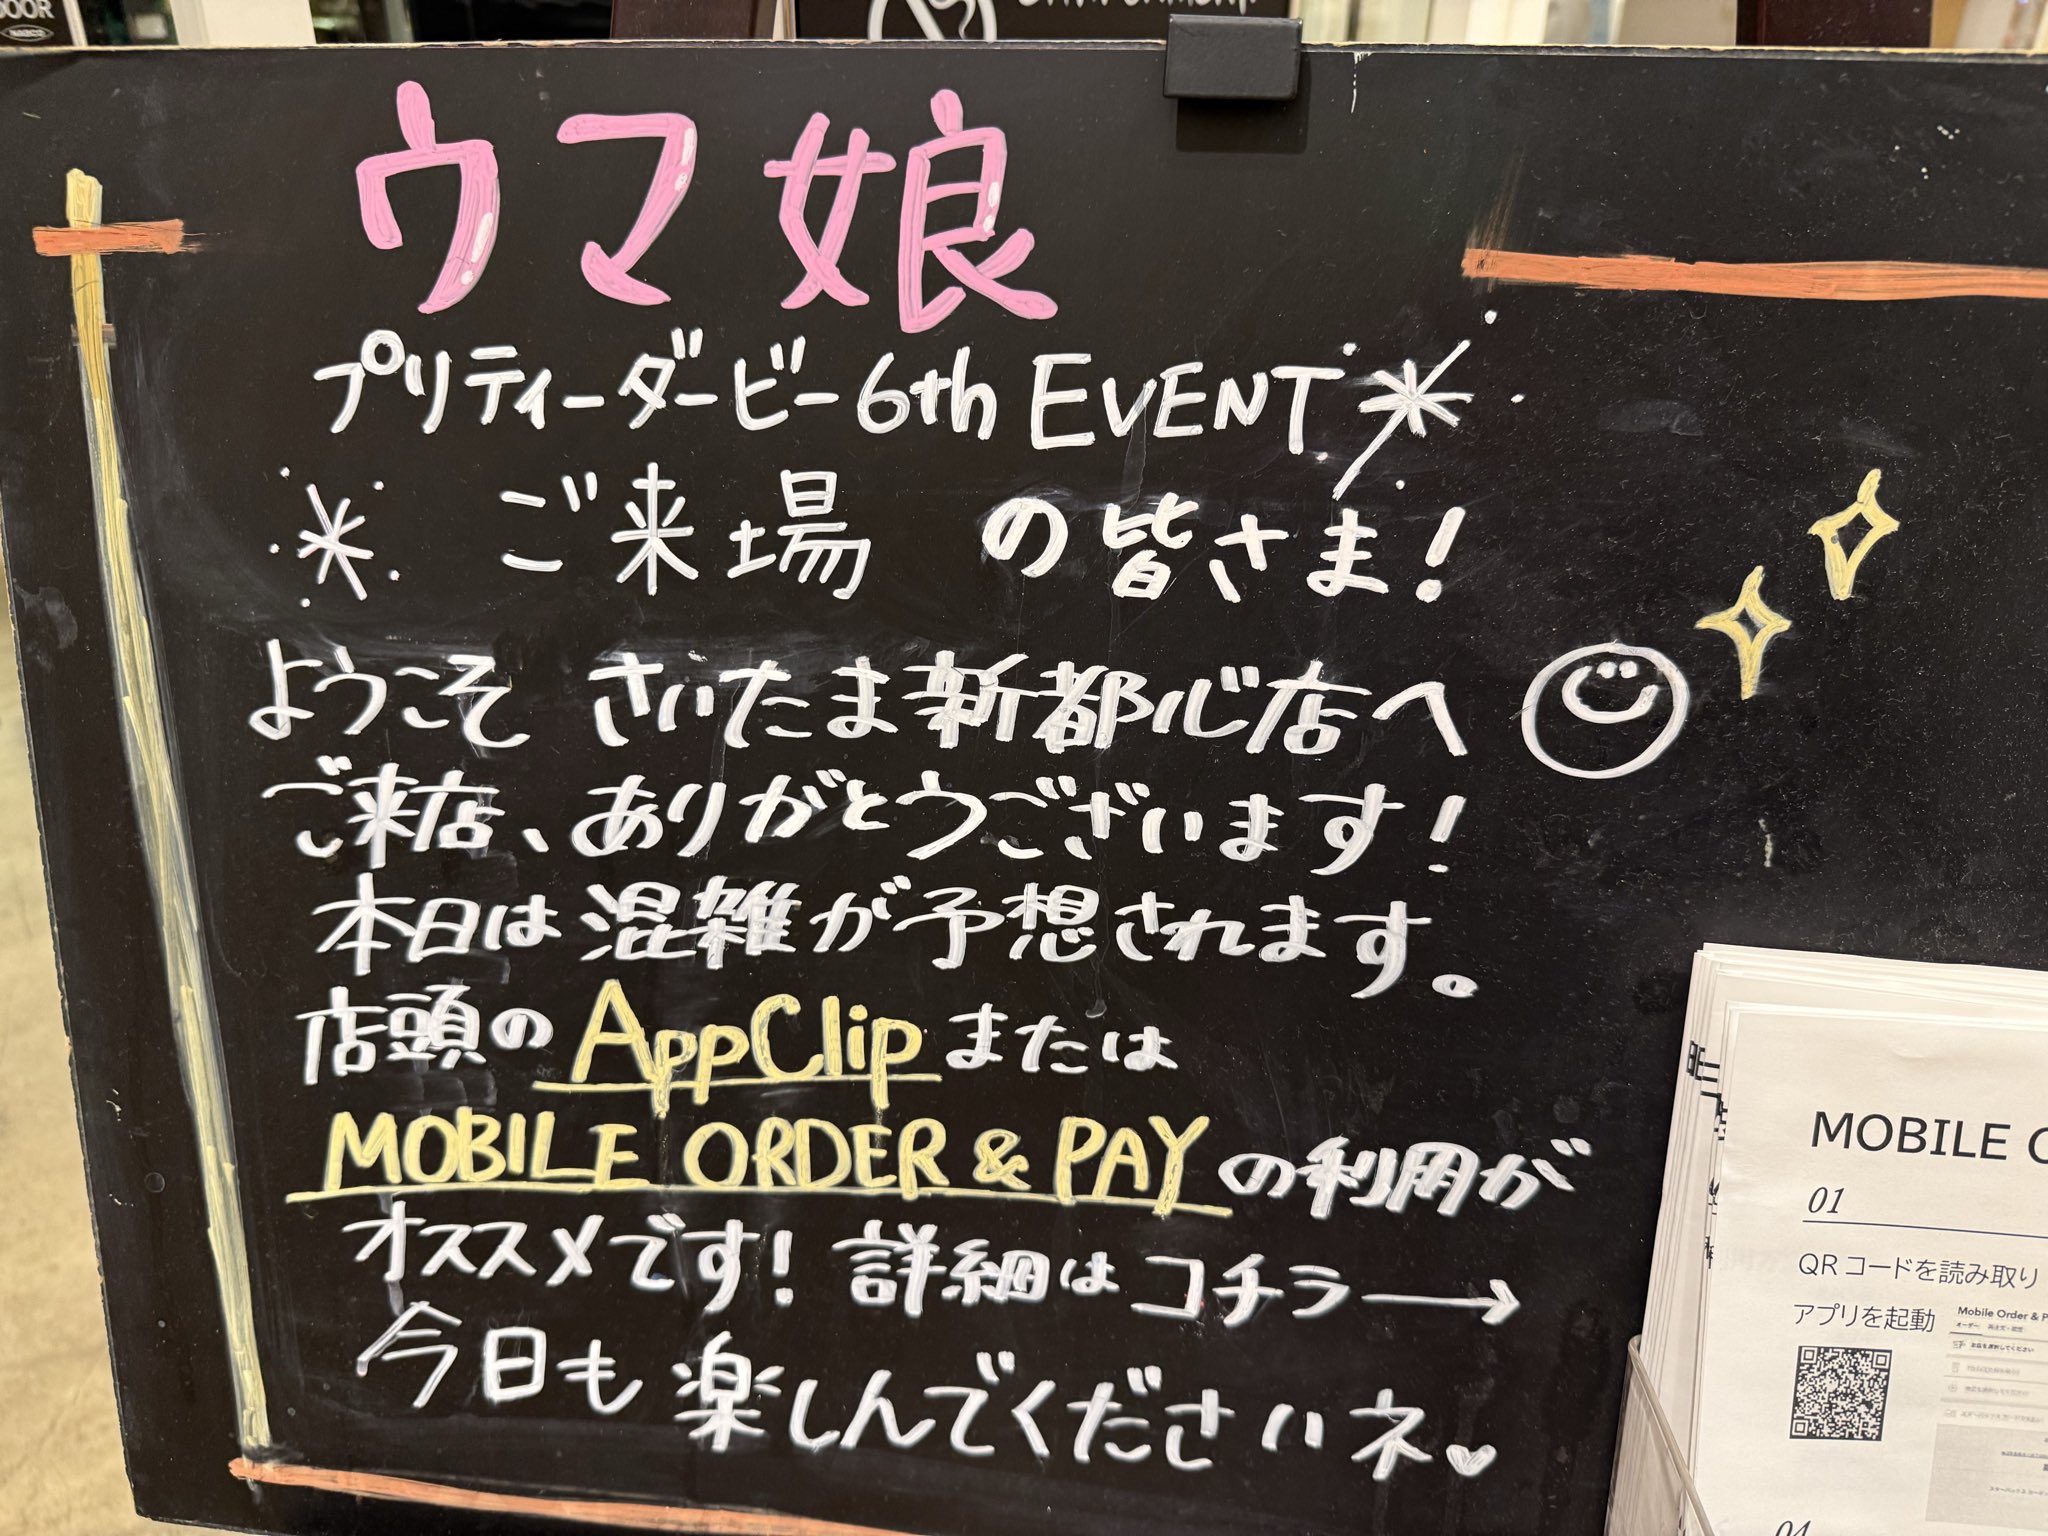 DOOR
ウマ娘
プリティーダービー 6th EVENT
ご来場 の皆さま!
ようこそ さいたま新都心店へ
ご来店、ありがとうございます!
本日は混雑が予想されます。
店頭の AppClip または
MOBILE ORDER & PAY の利用が
オススメです! 詳細は コチラ→
今日も 楽しんでくださいネ♥
MOBILE O
01
QRコードを読み取り
アプリを起動
Mobile Order & P
04